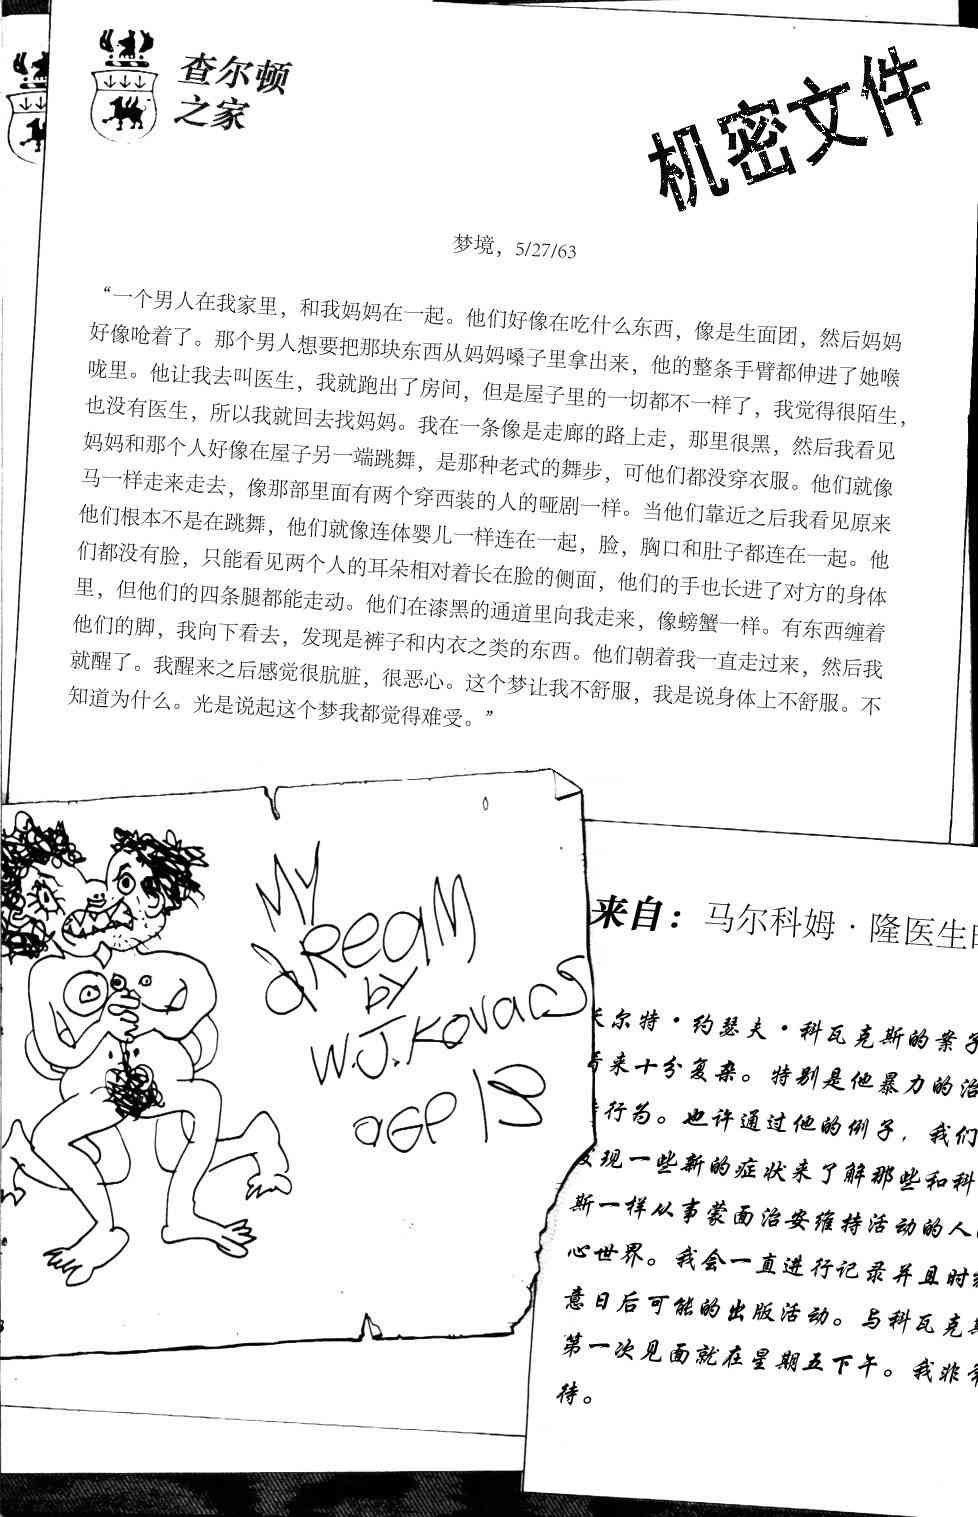 查尔顿
之家
机密文件
梦境，5/27/63
“一个男人在我家里，和我妈妈在一起。他们好像在吃什么东西，像是生面团，然后妈妈
好像呛着了。那个男人想要把那块东西从妈妈嗓子里拿出来，他的整条手臂都伸进了她喉
咙里。他让我去叫医生，我就跑出了房间，但是屋子里的一切都不一样了，我觉得很陌生，
也没有医生，所以我就回去找妈妈。我在一条像是走廊的路上走，那里很黑，然后我看见
妈妈和那个人好像在屋子另一端跳舞，是那种老式的舞步，可他们都没穿衣服。他们就像
马一样走来走去，像那部里面有两个穿西装的人的哑剧一样。当他们靠近之后我看见原来
他们根本不是在跳舞，他们就像连体婴儿一样连在一起，脸，胸口和肚子都连在一起。他
们都没有脸，只能看见两个人的耳朵相对着长在脸的侧面，他们的手也长进了对方的身体
里，但他们的四条腿都能走动。他们在漆黑的通道里向我走来，像螃蟹一样。有东西缠着
他们的脚，我向下看去，发现是裤子和内衣之类的东西。他们朝着我一直走过来，然后我
就醒了。我醒来之后感觉很肮脏，很恶心。这个梦让我不舒服，我是说身体上不舒服。不
知道为什么。光是说起这个梦我都觉得难受。”
MY
dReaM
by
W.J.Kovacs
aGe 13
来自：马尔科姆·隆医生
尔特·约瑟夫·科瓦克斯的案子
来十分复杂。特别是他暴力的治
行为。也许通过他的例子，我们
发现一些新的症状来了解那些和科
斯一样从事蒙面治安维持活动的人
心世界。我会一直进行记录并且时
意日后可能的出版活动。与科瓦克
第一次见面就在星期五下午。我非
待。